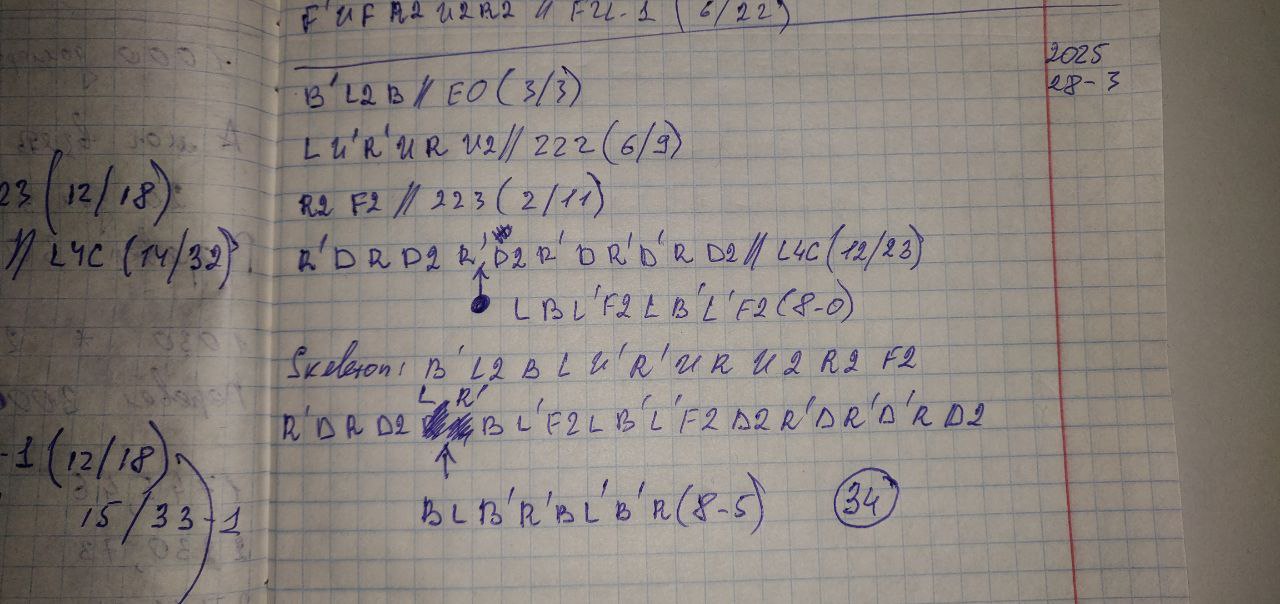 F'UF R2 U2R2 // FU-1 (6/22)
2025
28-3
B' L2 B // EO (3/3)
L U' R' U R U2 // 222 (6/9)
23 (12/18)
R2 F2 // 223 (2/11)
// L4C (14/32)
R' D R D2 R' D2 R' D R' D' R D2 // L4C (12/23)
L B L' F2 L B' L' F2 (8-0)
Skeleton: B' L2 B L U' R' U R U2 R2 F2
L R'
R' D R D2 B L' F2 L B' L' F2 D2 R' D R' D' R D2
-1 (12/18)
B L B' R' B L' B' R (8-5) 34
15/33-1